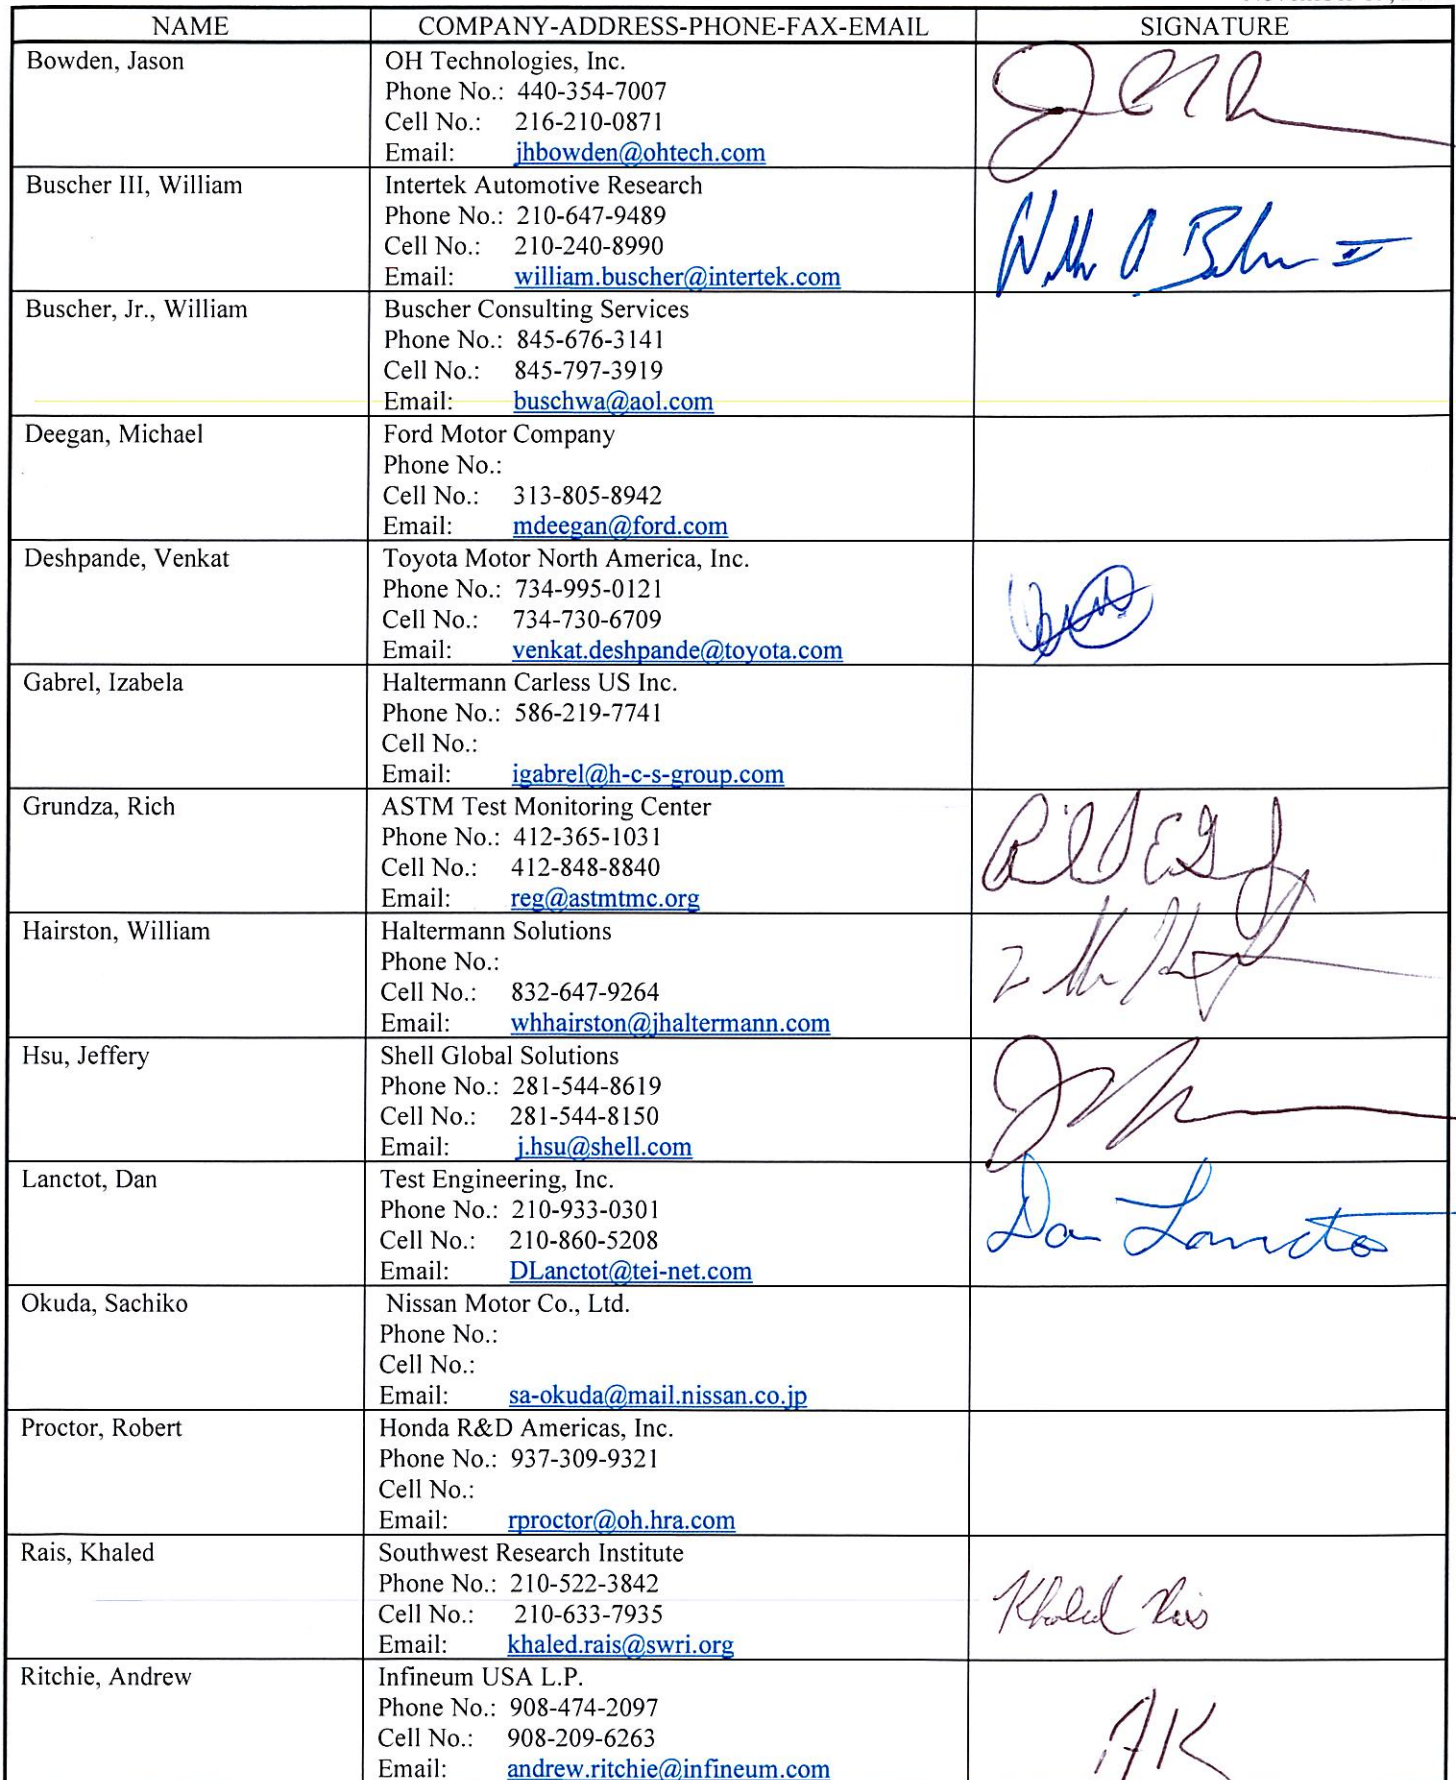 NAME COMPANY-ADDRESS-PHONE-FAX-EMAIL SIGNATURE
Bowden, Jason OH Technologies, Inc.
Phone No.: 440-354-7007
Cell No.: 216-210-0871
Email: jhbowden@ohtech.com
Buscher III, William Intertek Automotive Research
Phone No.: 210-647-9489
Cell No.: 210-240-8990
Email: william.buscher@intertek.com
Buscher, Jr., William Buscher Consulting Services
Phone No.: 845-676-3141
Cell No.: 845-797-3919
Email: buschwa@aol.com
Deegan, Michael Ford Motor Company
Phone No.:
Cell No.: 313-805-8942
Email: mdeegan@ford.com
Deshpande, Venkat Toyota Motor North America, Inc.
Phone No.: 734-995-0121
Cell No.: 734-730-6709
Email: venkat.deshpande@toyota.com
Gabrel, Izabela Haltermann Carless US Inc.
Phone No.: 586-219-7741
Cell No.:
Email: igabrel@h-c-s-group.com
Grundza, Rich ASTM Test Monitoring Center
Phone No.: 412-365-1031
Cell No.: 412-848-8840
Email: reg@astmtmc.org
Hairston, William Haltermann Solutions
Phone No.:
Cell No.: 832-647-9264
Email: whhairston@jhaltermann.com
Hsu, Jeffery Shell Global Solutions
Phone No.: 281-544-8619
Cell No.: 281-544-8150
Email: j.hsu@shell.com
Lanctot, Dan Test Engineering, Inc.
Phone No.: 210-933-0301
Cell No.: 210-860-5208 Dan Lanctot
Email: DLanctot@tei-net.com
Okuda, Sachiko Nissan Motor Co., Ltd.
Phone No.:
Cell No.:
Email: sa-okuda@mail.nissan.co.jp
Proctor, Robert Honda R&D Americas, Inc.
Phone No.: 937-309-9321
Cell No.:
Email: rproctor@oh.hra.com
Rais, Khaled Southwest Research Institute
Phone No.: 210-522-3842
Cell No.: 210-633-7935 Khaled Rais
Email: khaled.rais@swri.org
Ritchie, Andrew Infineum USA L.P.
Phone No.: 908-474-2097
Cell No.: 908-209-6263
Email: andrew.ritchie@infineum.com